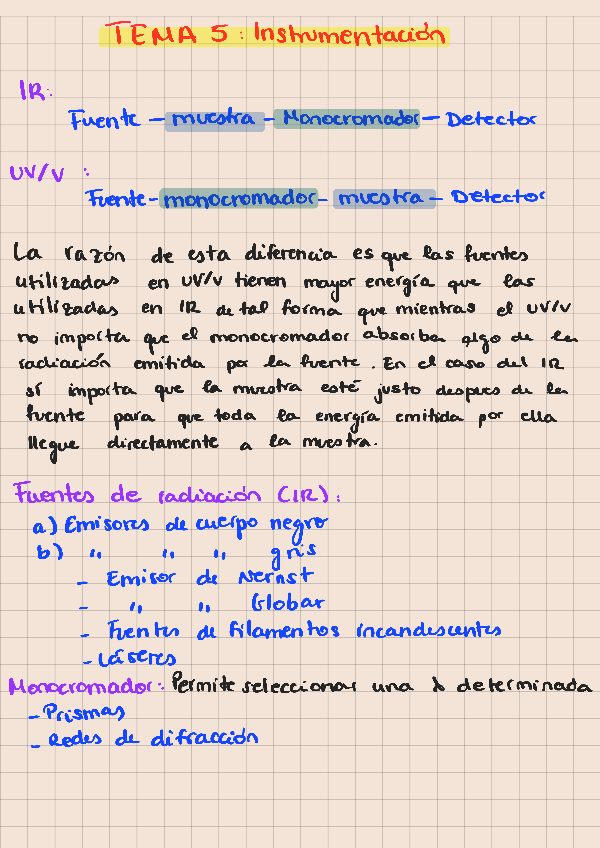 TEMA 5: Instrumentación
IR:
Fuente - muestra - Monocromador - Detector
UV/V :
Fuente - monocromador - muestra - Detector
La razón de esta diferencia es que las fuentes
utilizadas en UV/V tienen mayor energía que las
utilizadas en IR de tal forma que mientras el UV/V
no importa que el monocromador absorba algo de la
radiación emitida por la fuente. En el caso del IR
sí importa que la muestra esté justo despues de la
fuente para que toda la energía emitida por ella
llegue directamente a la muestra.
Fuentes de radiación (IR):
a) Emisores de cuerpo negro
b) " " " gris
- Emisor de Nernst
- " " Globar
- Fuentes de filamentos incandescentes
- Láseres
Monocromador: Permite seleccionar una λ determinada
- Prismas
- Redes de difracción